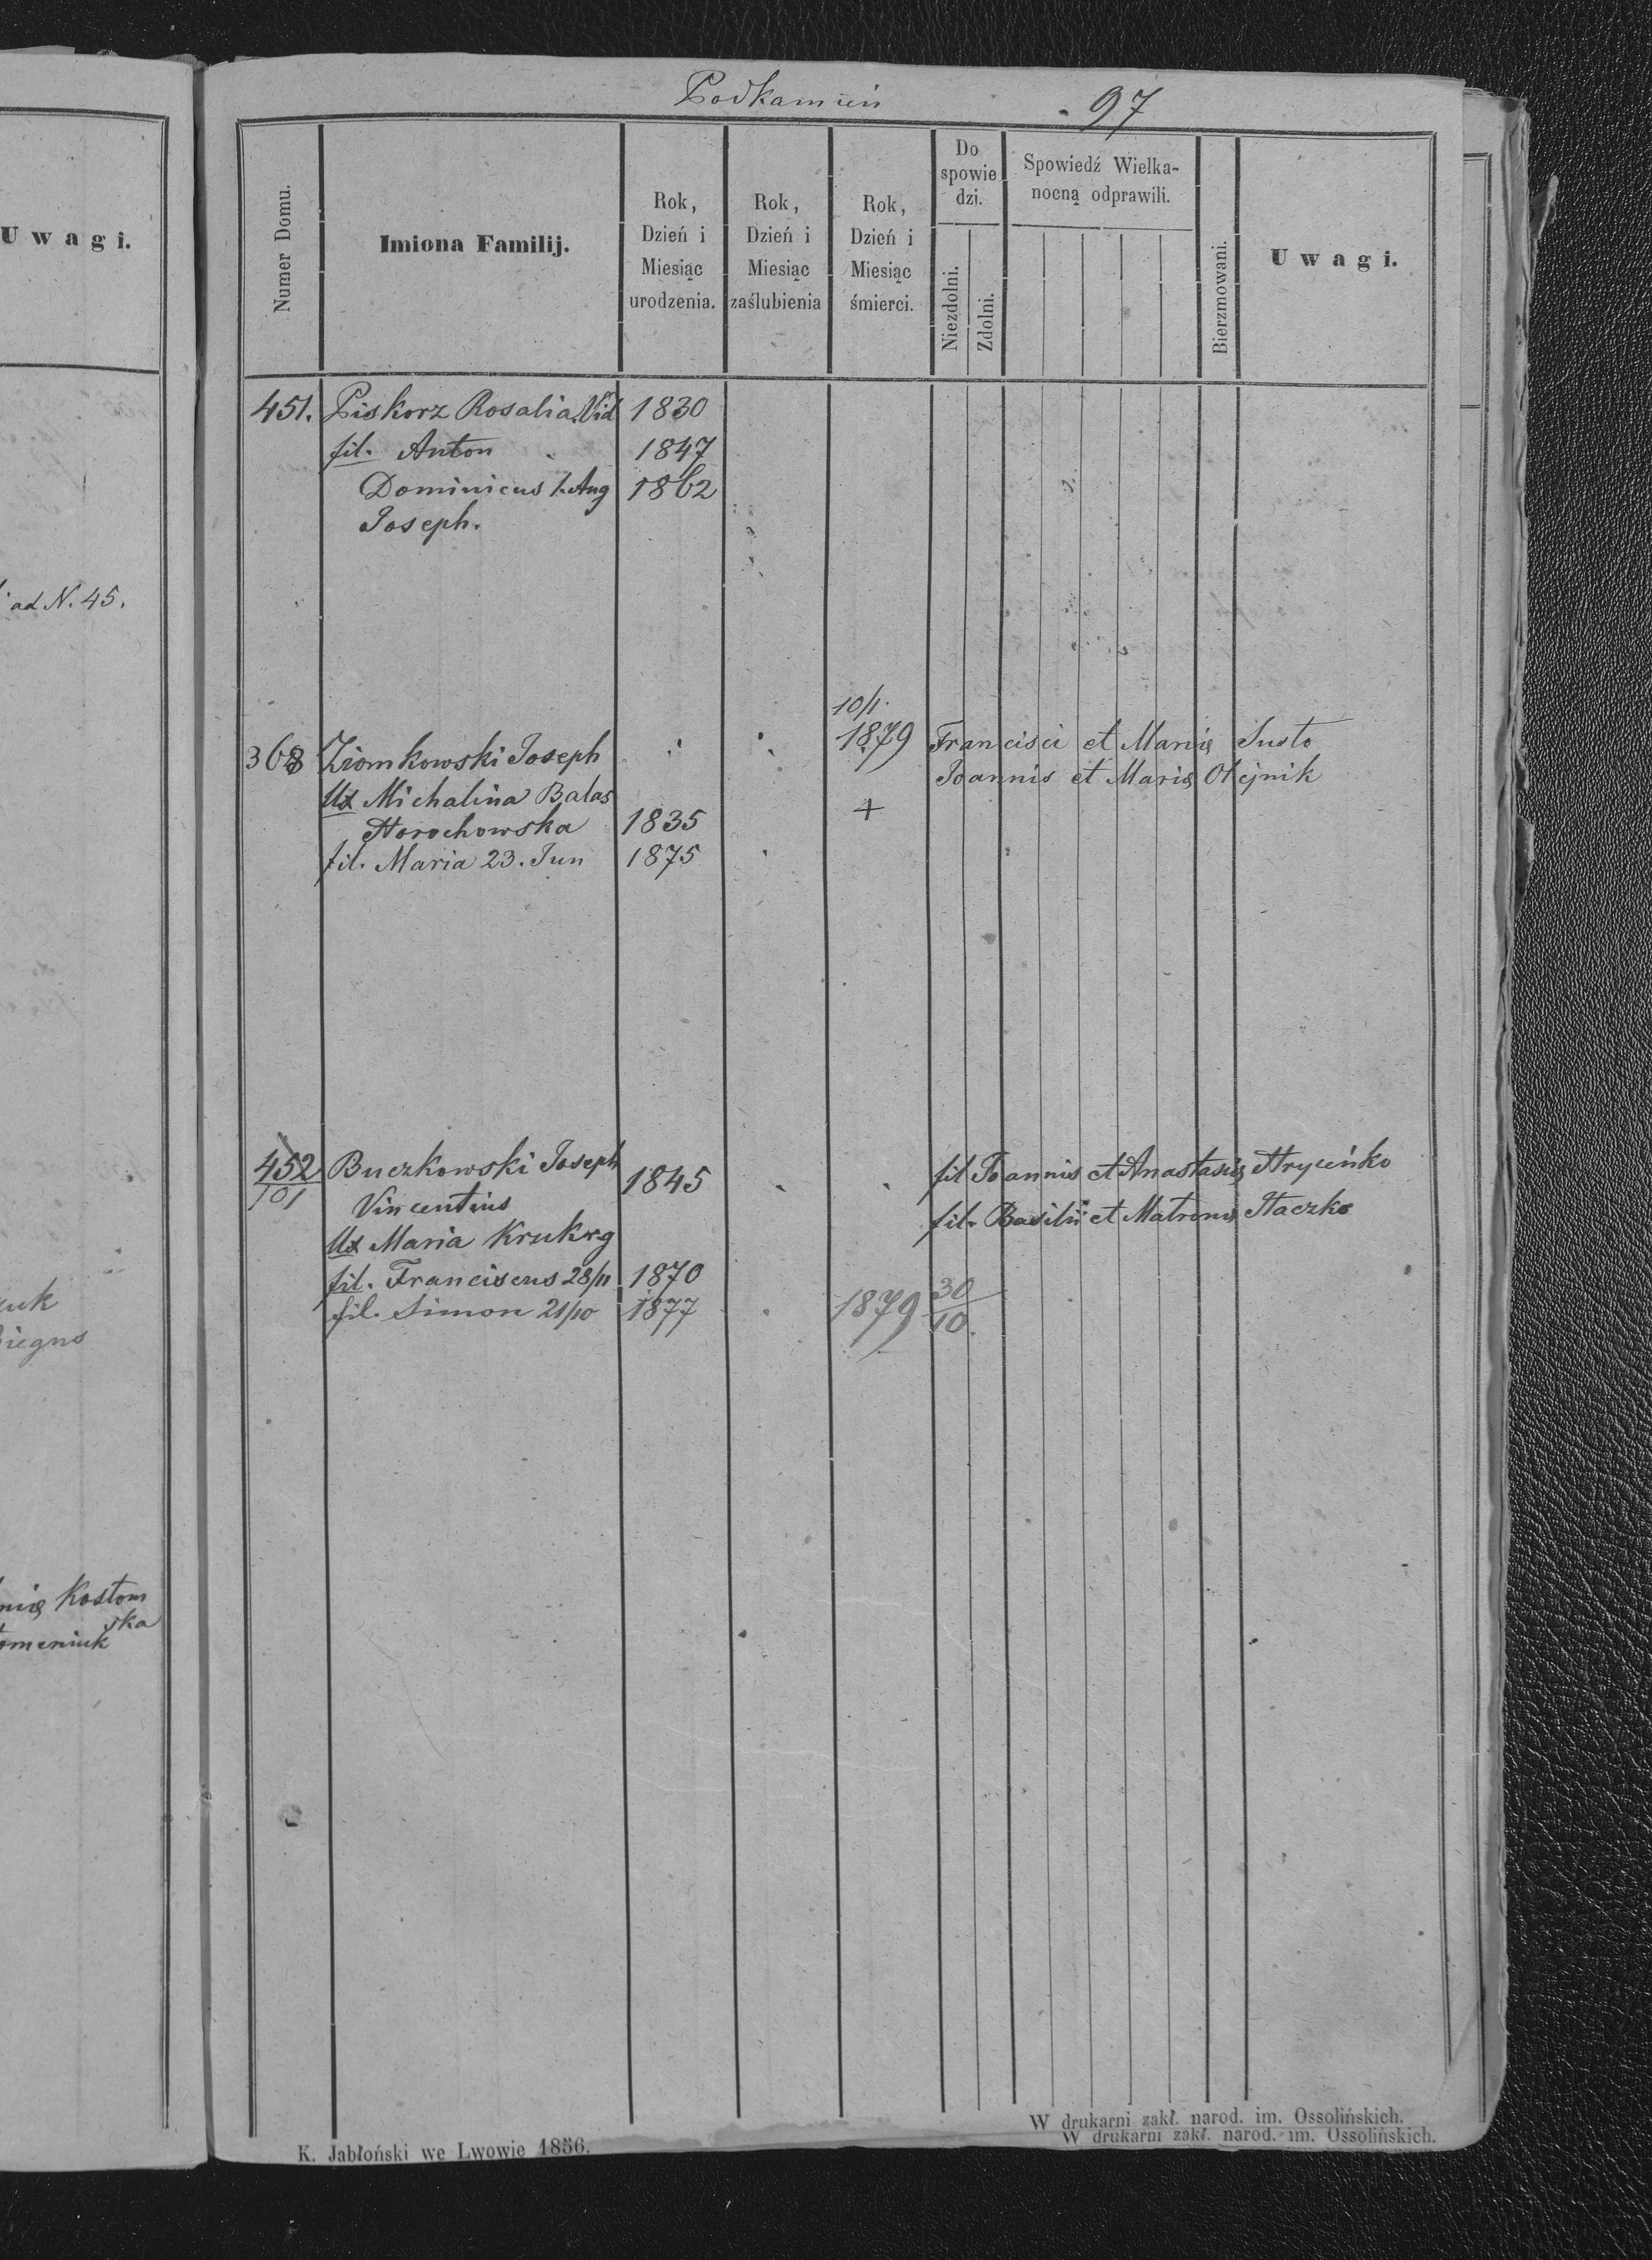 U w a g i.
ad N. 45.
nię Kostom
ska
Podkamień
97
Numer Domu.
Imiona Familij.
Rok,
Dzień i
Miesiąc
urodzenia.
Rok,
Dzień i
Miesiąc
zaślubienia
Rok,
Dzień i
Miesiąc
śmierci.
Do
spowie
dzi.
Niezdolni.
Zdolni.
Spowiedź Wielka-
nocną odprawili.
Bierzmowani.
U w a g i.
451. Piskorz Rosalia Vid 1830
fil. Anton 1847
Dominicus 1. Aug 1862
Joseph.
10/1.
368 Ziomkowski Joseph 1879 Francisci et Marię Susto
Ux Michalina Balas Joannis et Marię Olejnik
Horochowska 1835 +
fil. Maria 23. Jun 1875
452 Buczkowski Joseph 1845 fil Joannis et Anastasię Hryćeńko
101
Vincentius fil. Basilii et Matronę Haczko
Ux Maria Kruk rg
fil. Franciscus 28/11 1870
fil. Simon 21/10 1877 1879 30/10.
K. Jabłoński we Lwowie 1856.
W drukarni zakł. narod. im. Ossolińskich.
W drukarni zakł. narod. im. Ossolińskich.